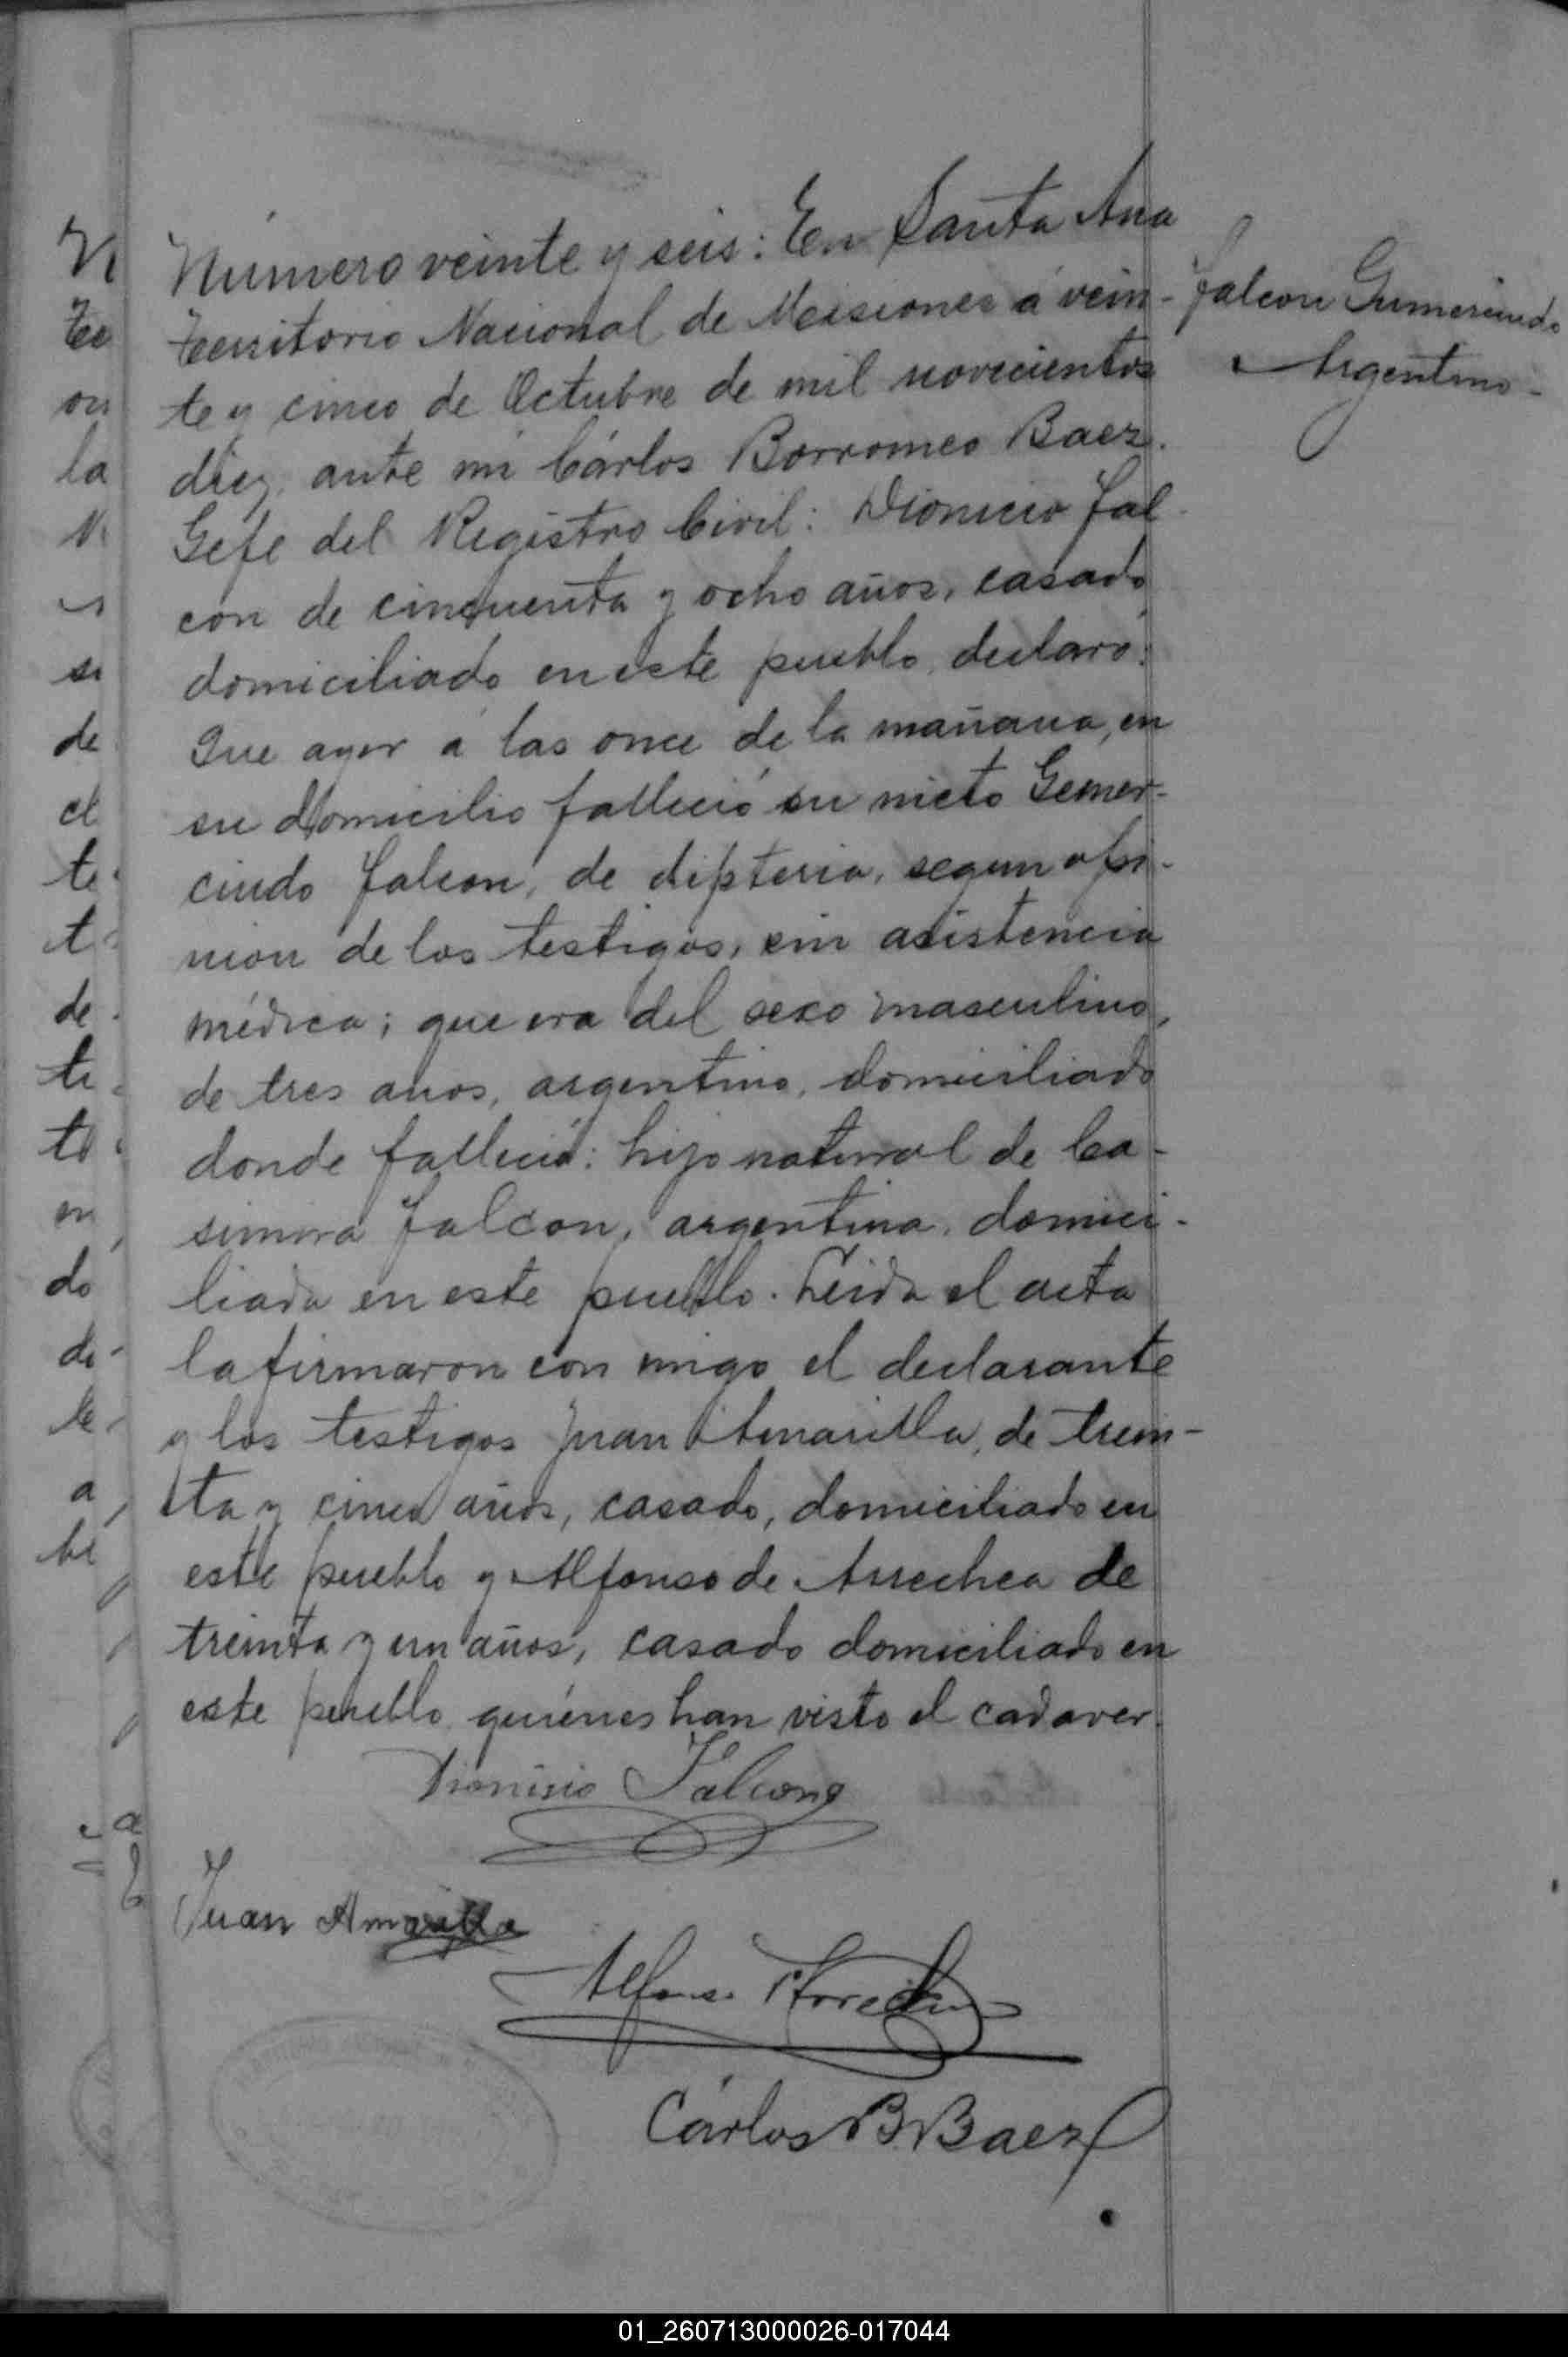 Número veinte y seis: En Santa Ana
territorio Nacional de Missiones á vein-
te y cinco de Octubre de mil novecientos
diez, ante mi Cárlos Borromeo Baez.
Gefe del Registro Civil: Dionicio Fal
con de cincuenta y ocho años, casado
domiciliado en este pueblo, declaró:
Que ayer á las once de la mañana, en
su domicilio falleció su nieto Gemer-
cindo Falcon, de difteria, segun opi-
nion de los testigos, sin asistencia
médica; que era del sexo masculino,
de tres anos, argentino, domiciliado
donde falleció: hijo natural de Ca-
simira Falcon, argentina, domici-
liada en este pueblo. Leida el acta
la firmaron con migo el declarante
y los testigos Juan Amarilla, de trein-
ta y cinco años, casado, domiciliado en
este pueblo y Alfonso de Arrechea de
treinta y un años, casado domiciliado en
este pueblo quiénes han visto el cadaver.
Dionisio Falcong
Juan Amarilla
Alfonso Arrechea
Cárlos B. Baez
Falcon Gumersindo
Argentino-
01_260713000026-017044